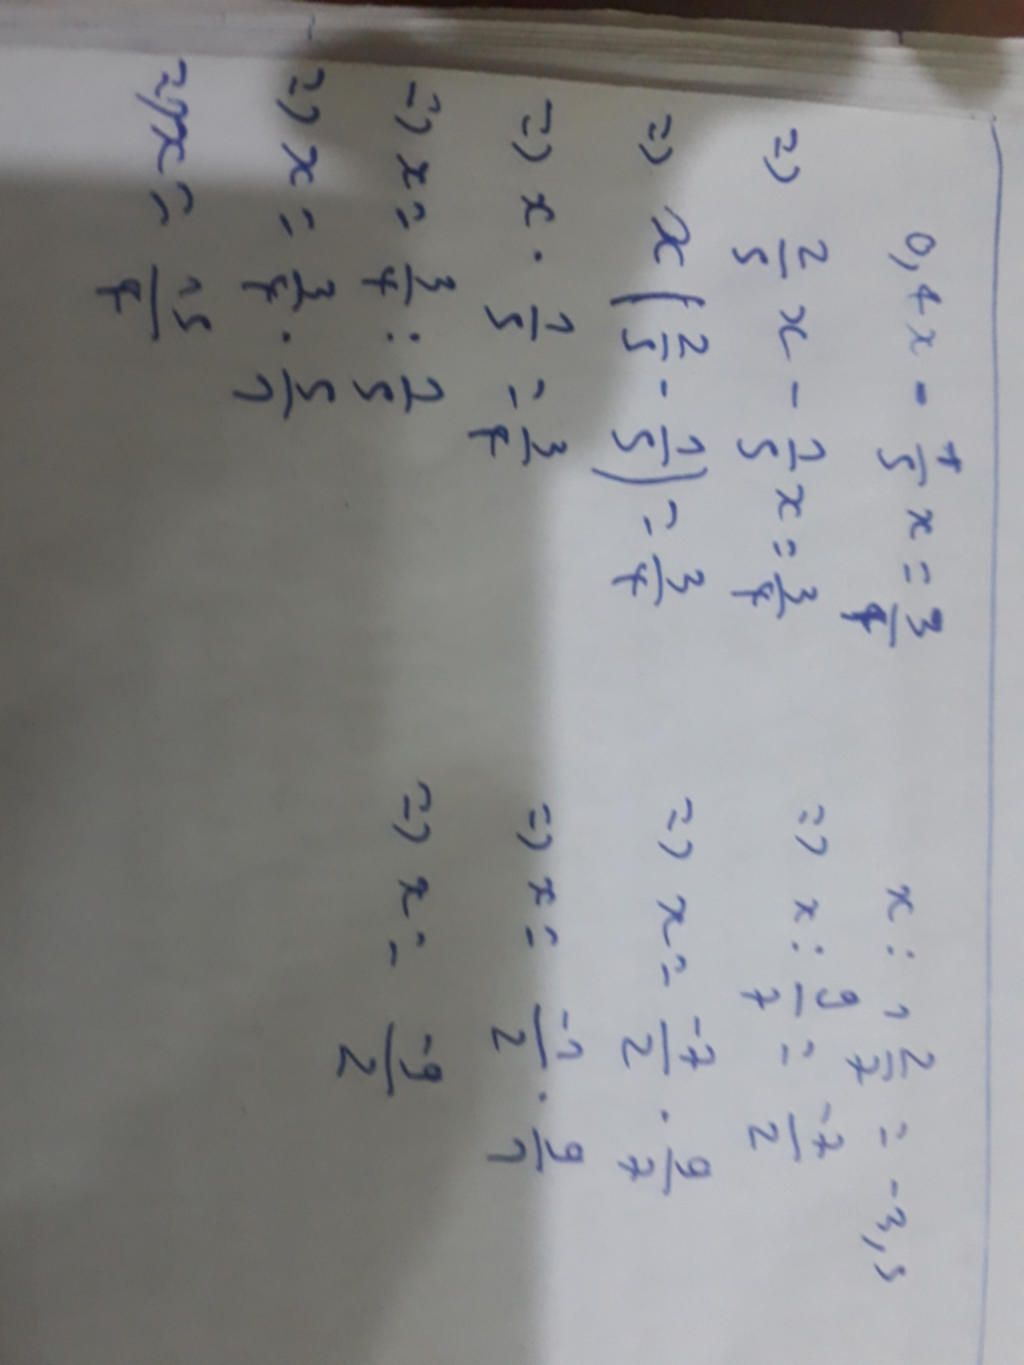 0,4x - 1/5 x = 3/4
=> 2/5 x - 1/5 x = 3/4
=> x (2/5 - 1/5) = 3/4
=> x . 1/5 = 3/4
=> x = 3/4 : 1/5
=> x = 3/4 . 5/1
=> x = 15/4
x : 1 2/7 = -3,5
=> x : 9/7 = -7/2
=> x = -7/2 . 9/7
=> x = -1/2 . 9/1
=> x = -9/2